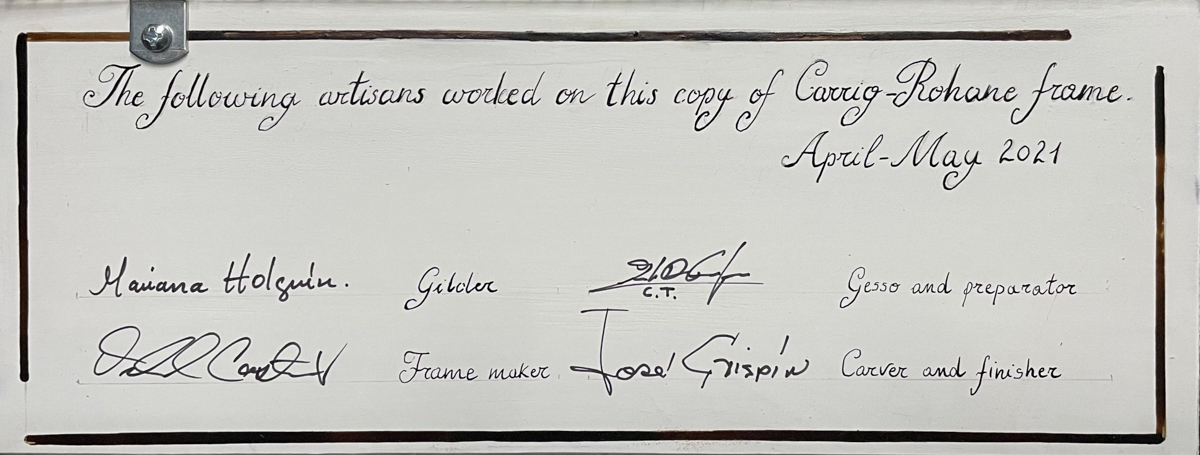 The following artisans worked on this copy of Carrig-Rohane frame.
April-May 2021
Mariana Holguín. Gilder C.T. Gesso and preparator
Frame maker José Crispín Carver and finisher